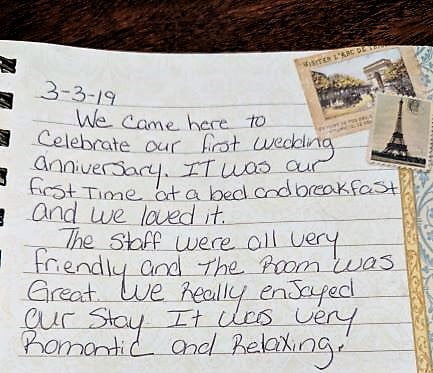 VISITER L'ARC DE
3-3-19
We came here to
celebrate our first wedding
anniversary. IT was our
first Time at a bed and breakfast
and we loved it.
The staff were all very
friendly and The Room was
Great. We Really enjoyed
our Stay. It was very
Romantic and Relaxing.